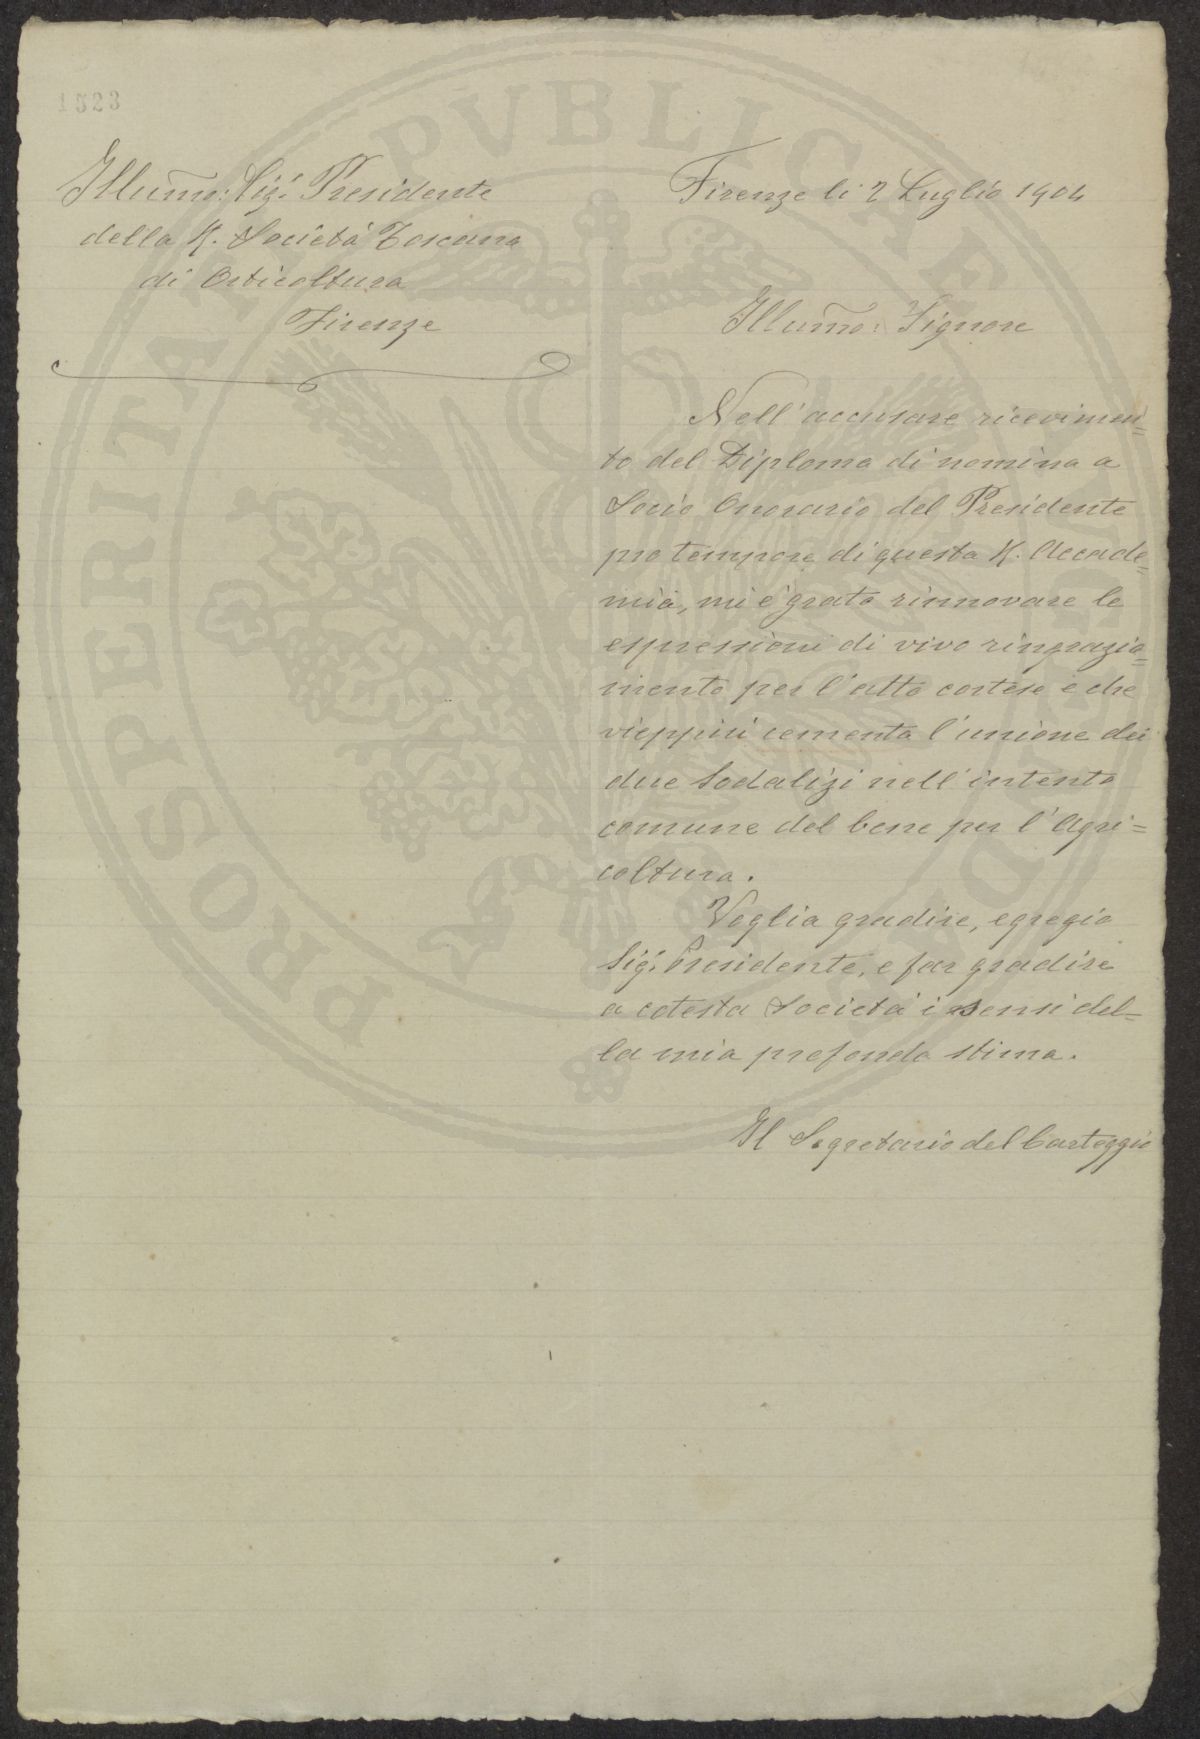 1523
Illum̃o: Sig.r Presidente
della R. Società Toscana
di Orticoltura
Firenze
Firenze li 2 Luglio 1904
Illum̃o: Signore
Nell'accusare ricevimen=
to del Diploma di nomina a
Socio Onorario del Presidente
pro tempore di questa R. Accade=
mia, mi è grato rinnovare le
espressioni di vivo ringrazia=
mento per l'atto cortese e che
vieppiù cementa l'unione dei
due Sodalizi nell'intento
comune del bene per l'Agri=
coltura.
Voglia gradire, egregio
Sig.r Presidente, e far gradire
a cotesta Società i sensi del=
la mia profonda stima.
Il Segretario del Carteggio
PROSPERITATI PVBLICAE AVGENDAE